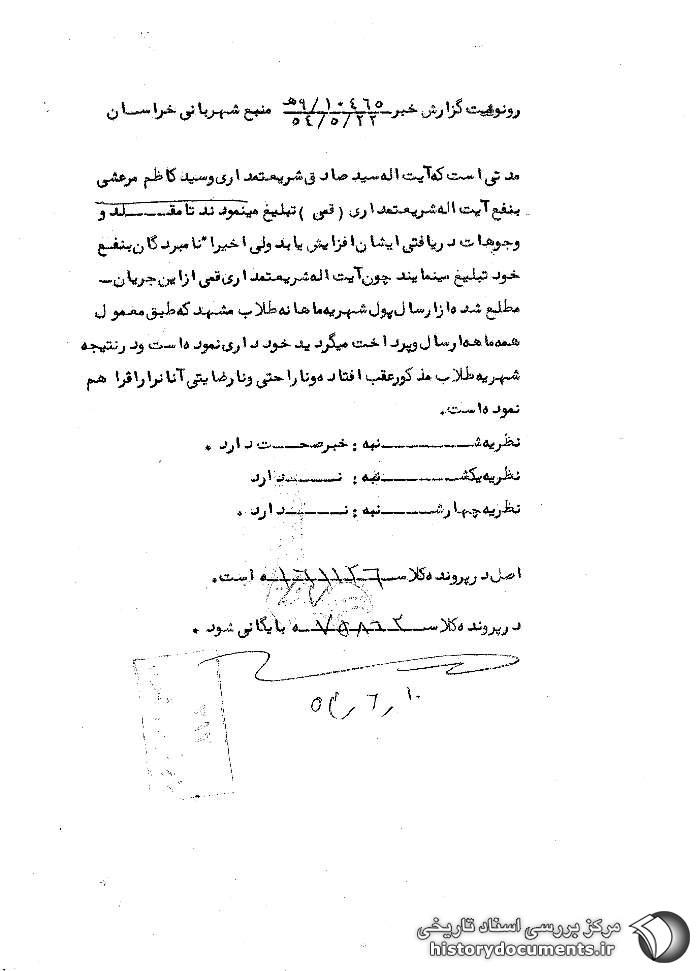 رونوشت گزارش خبر ۹/۱۰٤٦٥ هـ منبع شهربانی خراسان
٥٤/٥/۲۲
مدتی است که آیت اله سید صادق شریعتمداری و سید کاظم مرعشی
بنفع آیت اله شریعتمداری (قمی) تبلیغ مینمودند تا مقلد و
وجوهات دریافتی ایشان افزایش یابد ولی اخیرا" نامبردگان بنفع
خود تبلیغ مینمایند چون آیت اله شریعتمداری قمی از این جریان
مطلع شده از ارسال پول شهریه ماهانه طلاب مشهد که طبق معمول
همه ماهه ارسال و پرداخت میگردید خودداری نموده است و در نتیجه
شهریه طلاب مذکور عقب افتاده و ناراحتی و نارضایتی آنان را فراهم
نموده است.
نظریه شنبه : خبر صحت دارد .
نظریه یکشنبه : ندارد
نظریه چهارشنبه : ندارد .
اصل در پرونده کلاسه است.
در پرونده کلاسه بایگانی شود .
٥٤/٦/۱۰
مرکز بررسی اسناد تاریخی
historydocuments.ir